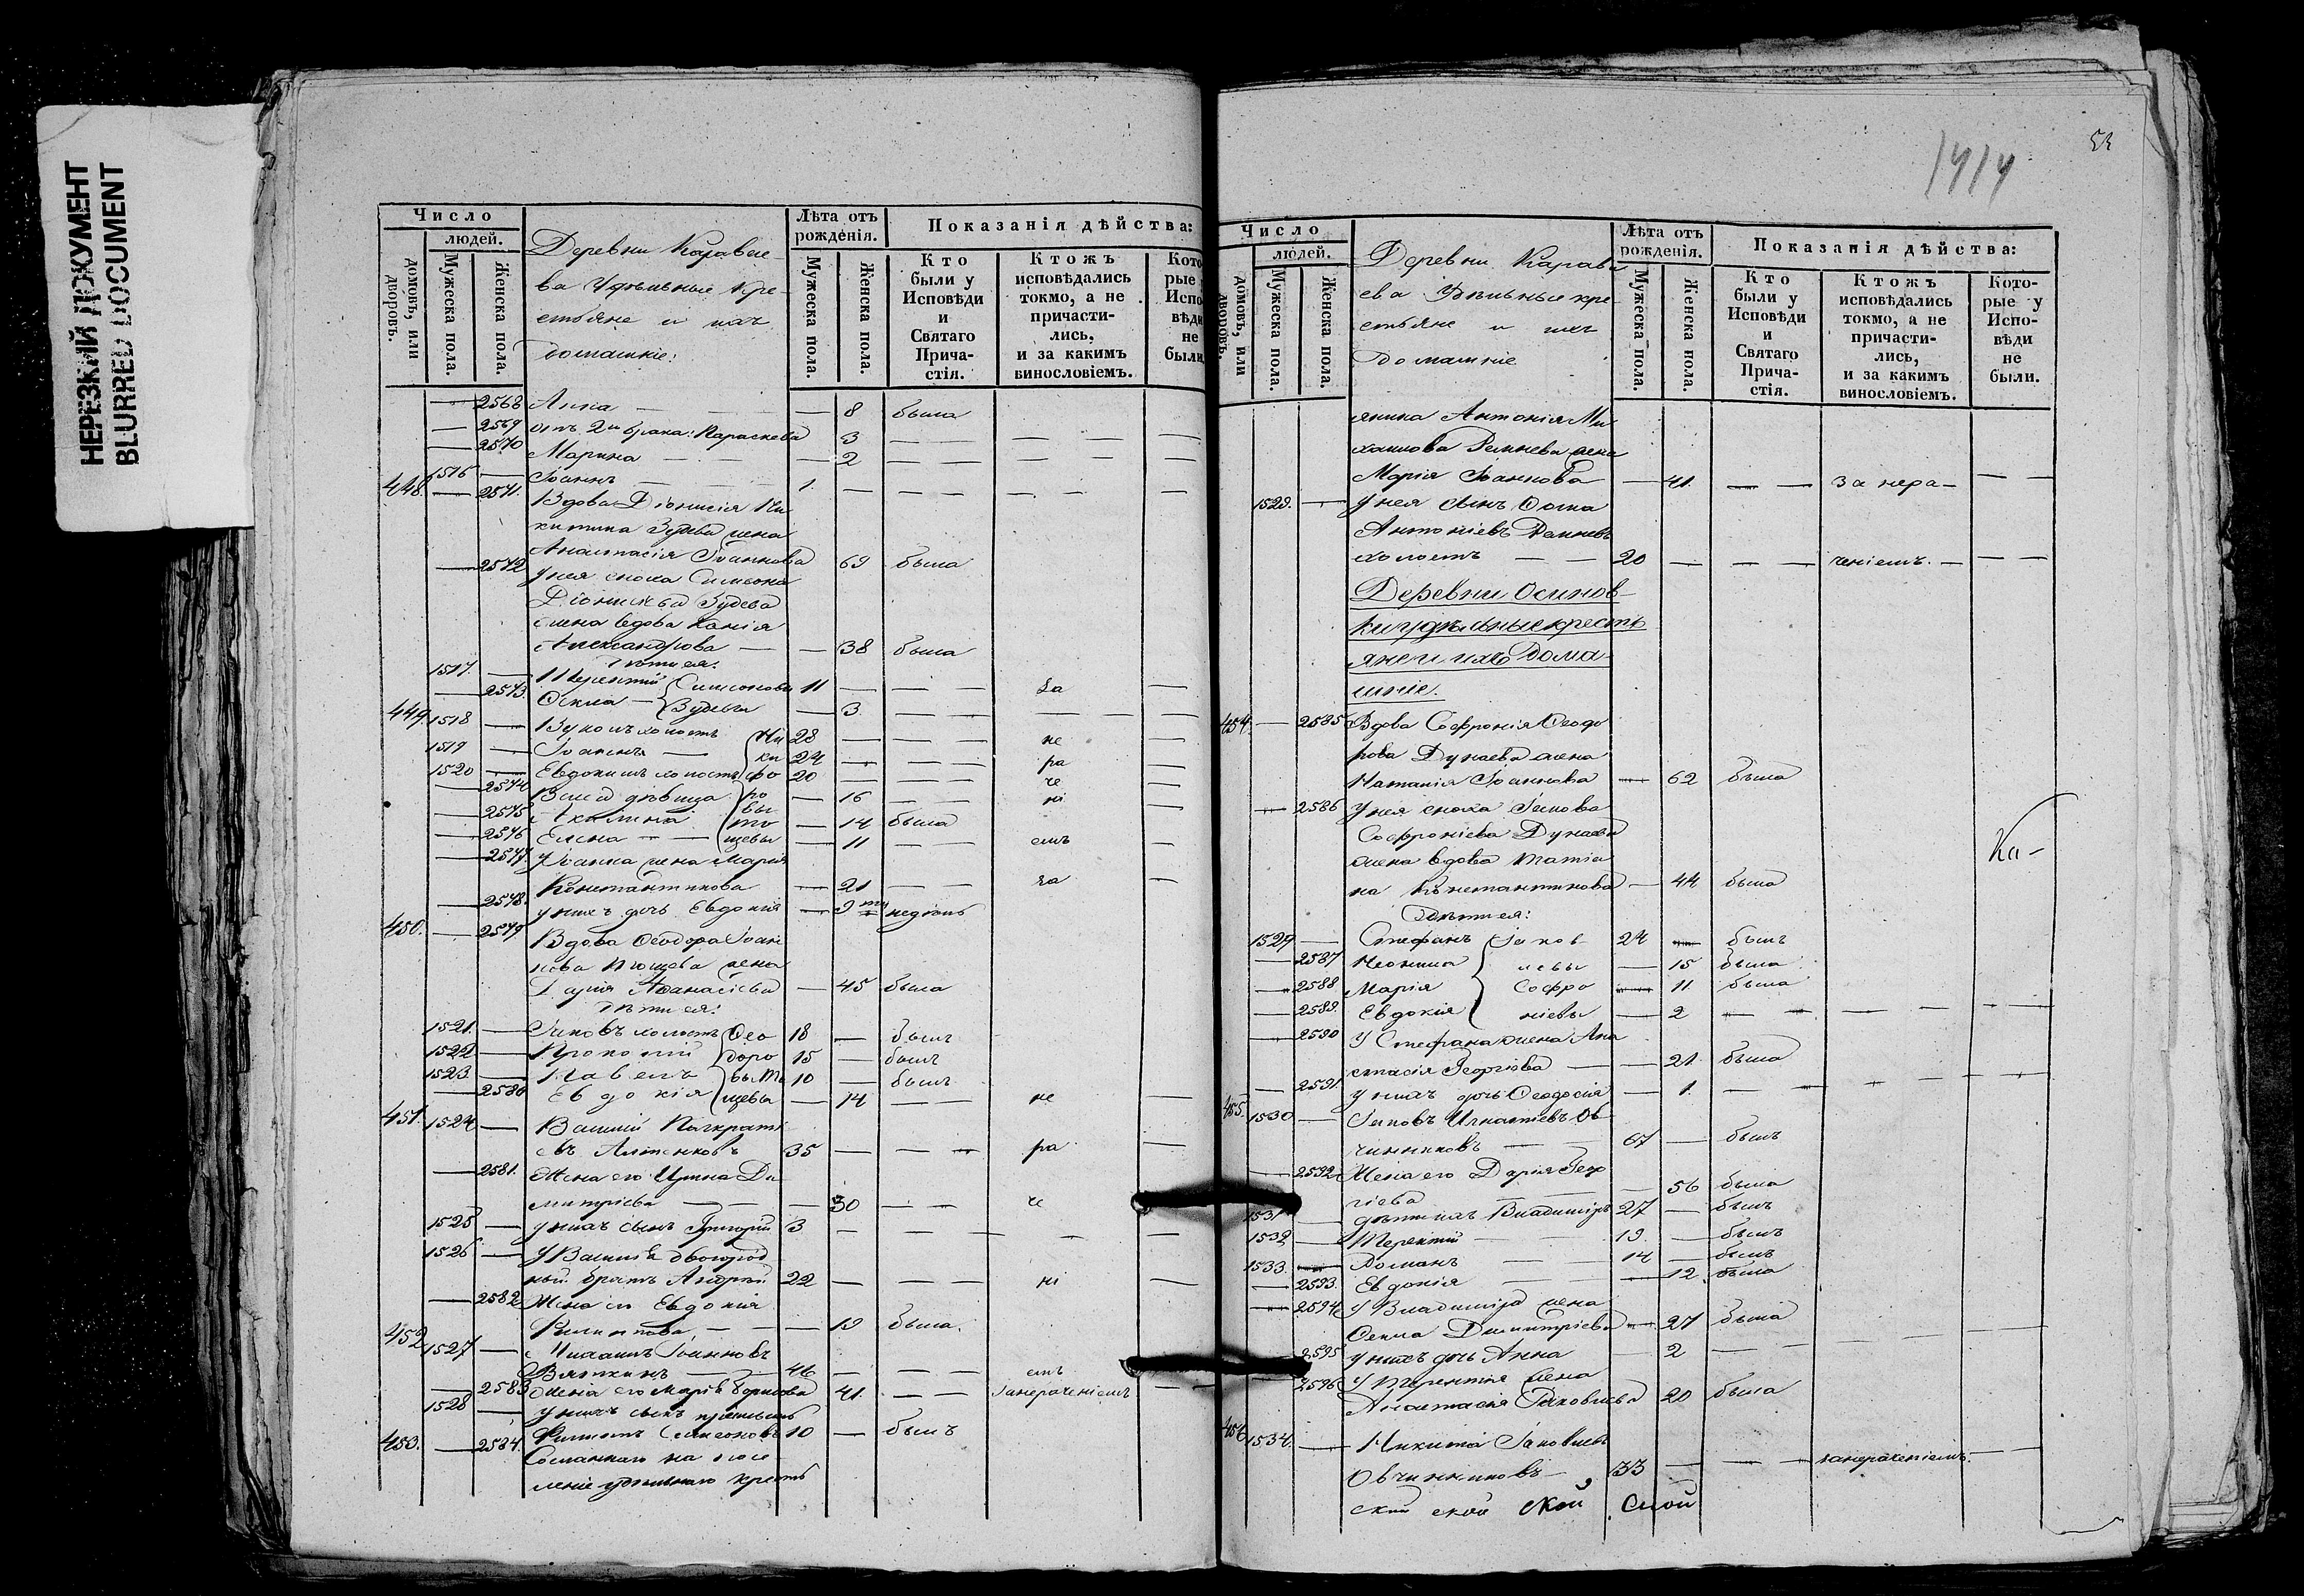 НЕРЕЗКИЙ ДОКУМЕНТ
BLURRED DOCUMENT
Число
людей.
домовъ, или дворовъ.
Мужеска пола.
Женска пола.
Деревни Каравае-
ва Удѣльные кре-
стьяне и ихъ
домашніе:
Лѣта отъ рожденія.
Мужеска пола.
Женска пола.
Показанія дѣйства:
Кто были у Исповѣди и Святаго Прича-стія.
Ктожъ исповѣдались токмо, а не причасти-лись, и за какимъ винословіемъ.
Кото рые Испо вѣди не были
— 2568 Анна — — 8 была
— 2569 отъ 2го брака: Параскева 3 — — —
— 2570 Марина — — 2 — — —
1516 — Іоаннъ — 1. — — —
448. — 2571. Вдова Діонисія Ни
китина Зудева жена
Анастасія Іоаннова 69 была
— 2572 у нея сноха Симеона
Діонисіева Зудева
жена вдова Ксенія
Александрова — — 38 была
дѣти ея:
1517. — Терентій Симеоновы 11 — — за —
— 2573. Фекла — Зудевы — 3 — — —
449 1518 — Вуколъ холостъ Ни 28 — — не —
1519 — Іоаннъ — ки 24 — — ра —
1520 — Евдокимъ холостъ фо 20 — — че —
— 2574 девица ро — 16 — — ні —
— 2575 Акилина вы — 14 была
— 2576 Елена — — щевы — 11 — емъ —
— 2577 у Іоанна жена Марія
Константинова — 21 — — за —
— 2578. у нихъ дочь Евдокія — 9 недѣль
450. — 2579 Вдова Ѳеодора Іоан
нова жена
Дарія Аѳанасіева — 45 была
дѣти ея:
1521. — Іаковъ холостъ Ѳео 18 — былъ
1522 — Прокопій доро 15 — былъ
1523 — Павелъ 10 — былъ
— 2580 Евдокія щевы — 14 — — не —
451. 1524 — Василій Панкрать
евъ 35 — — ра —
— 2581. Жена его Ирина Ди
митріева — — 30 — — че
1525 — у нихъ сынъ Григорій 3 — — — —
1526 — у Василія двоюрод
ный братъ Андрей 22 — — ні —
— 2582 Жена его Евдокія
Филиппова, — — 19 была.
452 1527 — Михаилъ Іоанновъ
— 46 — — емъ
— 2583 Жена его Марія Борисова 41. — — занераченіемъ —
1528 — у нихъ сынъ
Филиппъ Симеоновъ 10 — былъ
453. — 2584. Сосланнаго на посе-
леніе удѣльнаго кресть
1414
53
Число
людей.
домовъ, или дворовъ.
Мужеска пола.
Женска пола.
Деревни Карава
ева Удѣльные кре
стьяне и ихъ
домашніе
Лѣта отъ рожденія.
Мужеска пола.
Женска пола.
Показанія дѣйства:
Кто были у Исповѣди и Святаго Прича-стія.
Ктожъ исповѣдались токмо, а не причасти-лись, и за какимъ винословіемъ.
Кото-рые у Испо-вѣди не были.
янина Антонія Ми
хаилова жена
Марія Іоаннова — 41. — — за нера — — —
1529. — у нея сынъ Ѳома
Антоніевъ
холостъ — — 20 — — — ченіемъ. — — —
Деревни Осинов-
ки удѣльные кресть
яне и ихъ дома-
шніе.
454. — 2585 Вдова Софронія Ѳеодо
рова Дунаева жена
Наталія Іоаннова — 62 была
— 2586 у нея сноха Іакова
Софроніева Дунаева
жена вдова Татіа
на Константинова — 44 была
Дѣти ея:
1529 — Стефанъ Іаков- 24 — былъ
— 2587 Неонила левы — 15 была
— 2588 Марія Софро — 11 была
— 2589. Евдокія ніевы — 2 — — — —
— 2590 У Стефана жена Ана
стасія Георгіева — — 21. была
— 2591. у нихъ дочь Ѳеодосія — 1. — — —
455. 1530 — Іаковъ Игнатіевъ Ов
чинниковъ — 67 — былъ
— 2592 Жена его Дарія Геор
гіева — 56 была
1531 — дѣти ихъ Владиміръ 27 — былъ
1532 — Терентій — 19. — былъ
1533. — Романъ — 14 — былъ
— 2593. Евдокія — — 12. была
— 2594 У Владиміра жена
Фекла Димитріева — 27 была
2595 у нихъ дочь Анна — 2 — — —
2596 У Терентія жена
Анастасія Яковлева 20 была
456 1534. — Никита Іаковлевъ
Овчинниковъ — 33 — — — занераченіемъ. — —
ской ской ской ской
Ка-